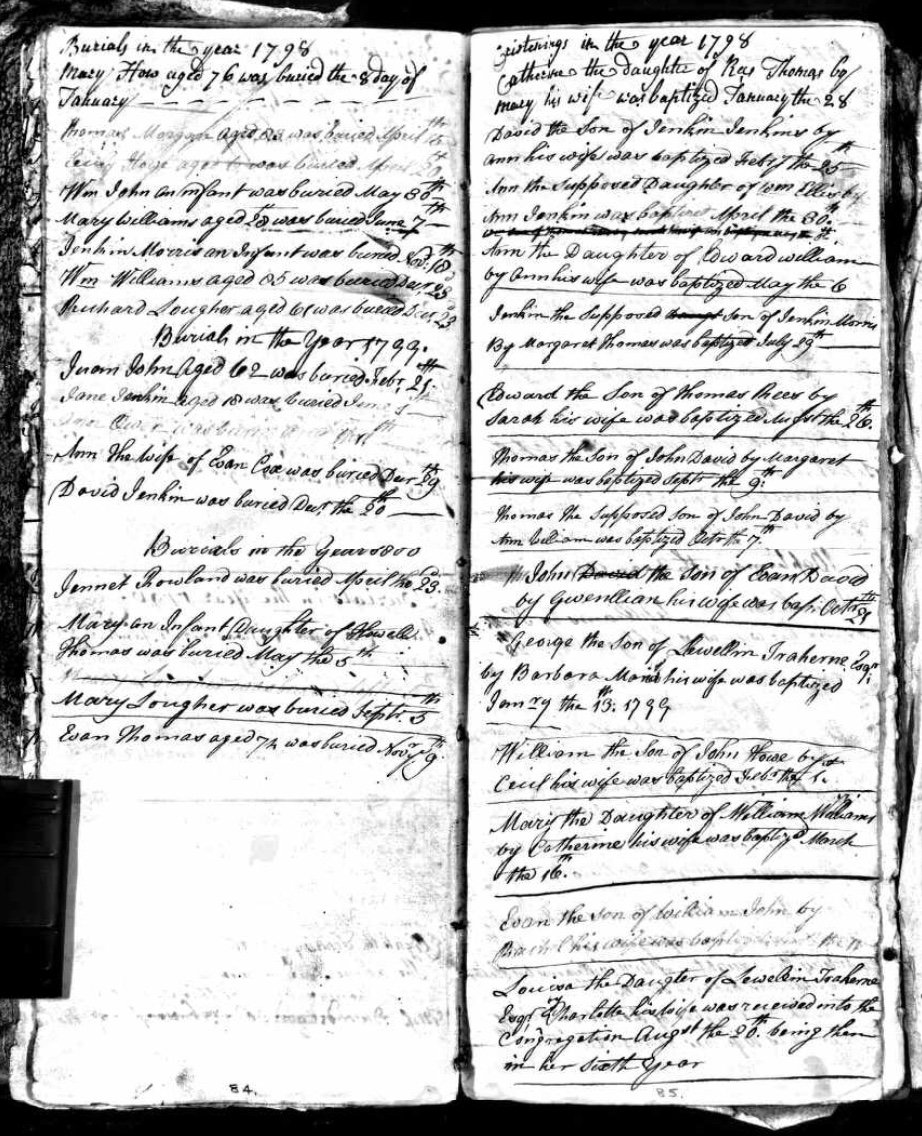 Burials in the year 1798
Mary How aged 76 was buried the 8 day of
January
Thomas Morgan aged was buried April
Cecily Howe aged was buried April
Wm John an Infant was buried May 30th
Mary Williams aged 28 was buried June 7th
Jenkin Morris an Infant was buried Novr 18th
Wm Williams aged 85 was buried Decr 23d
Richard Lougher aged was buried Decr 23d
Burials in the Year 1799.
Juan John Aged 62 was buried Febr, 21.
Jane Jenkin aged 18 was buried June
was buried
Ann the Wife of Evan Cox was buried Decr 29th
David Jenkin was buried Decr the 20th
Burials in the Year 1800
Jennet Rowland was buried April the 23d.
Mary an Infant Daughter of Howell
Thomas was buried May the 5th
Mary Lougher was buried Septr. 5th
Evan Thomas aged 74 was buried Novr 9
84.
istenings in the year 1798
Catherine the daughter of Rees Thomas by
Mary his wife was baptized January the 28
David the Son of Jenkin Jenkins by
Ann his wife was baptized Febry the 25th
Ann the Supposed Daughter of Wm Ellis by
Ann Jenkin was baptized April the 30th.
Ann the Daughter of Edward William
by Ann his wife was baptized May the 6
Jenkin the Supposed son of Jenkin Morris
By Margaret Thomas was baptized July 29th
Edward the Son of Thomas Rees by
Sarah his wife was baptized Augst the 26th.
Thomas the Son of John David by Margaret
his wife was baptized Septr the 9th.
Thomas the Supposed son of John David by
Ann William was baptized Octr the 7th.
John David the Son of Evan David
by Gwenllian his wife was bap. Octr 21
George the Son of Lewellin Traherne Esqr.
by Barbara Maria his wife was baptized
Janry the 13th. 1799
William the Son of John Howe by
Cecil his wife was baptized Feb. the 1st.
Mary the Daughter of William Williams
by Catherine his wife was baptized March
the 16th.
Evan the son of William John by
Rachel his wife was baptized the
Louisa the Daugter of Lewellin Traherne
Esqr Charlotte his wife was received into the
Congregation Augst the 20th. being then
in her Sixth Year
85.